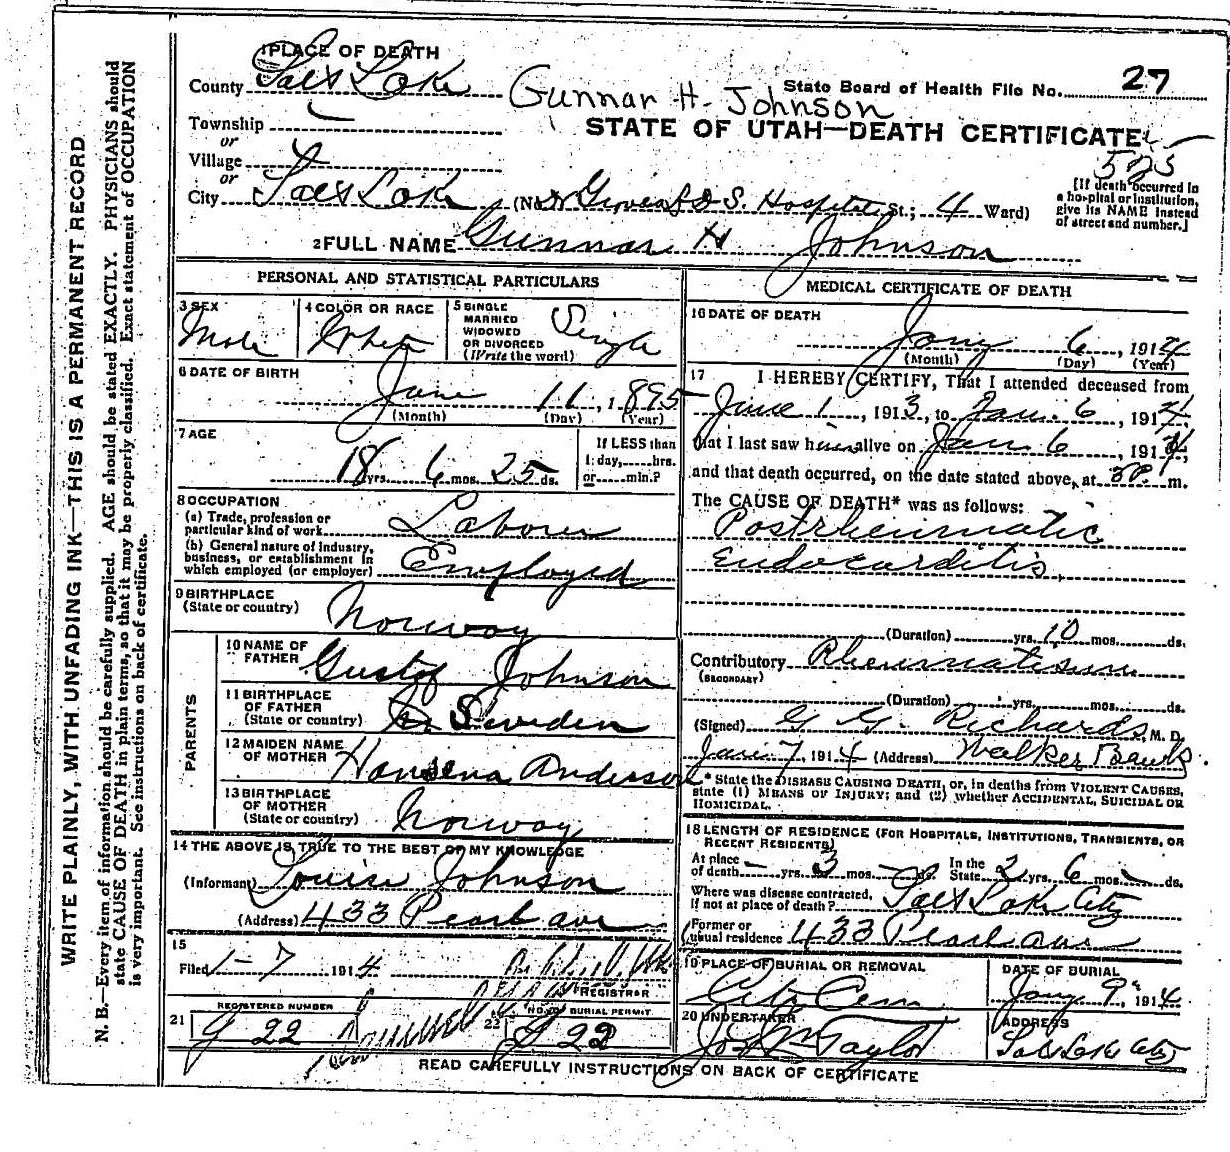 1 PLACE OF DEATH
County Salt Lake
Gunnar H. Johnson
State Board of Health File No. 27
Township
or
STATE OF UTAH—DEATH CERTIFICATE
Village
or
525
City Salt Lake (No. Groves L D S. Hospital St.; 4 Ward)
[If death occurred in
a hospital or institution,
give its NAME instead
of street and number.]
2 FULL NAME Gunnar H Johnson
WRITE PLAINLY, WITH UNFADING INK—THIS IS A PERMANENT RECORD
N. B.—Every item of information should be carefully supplied. AGE should be stated EXACTLY. PHYSICIANS should
state CAUSE OF DEATH in plain terms, so that it may be properly classified. Exact statement of OCCUPATION
is very important. See instructions on back of certificate.
PERSONAL AND STATISTICAL PARTICULARS
3 SEX
Male
4 COLOR OR RACE
White
5 SINGLE
MARRIED
WIDOWED
OR DIVORCED
(Write the word)
Single
6 DATE OF BIRTH
June 11, 1895
(Month) (Day) (Year)
7 AGE
18 yrs. 6 mos. 25 ds.
If LESS than
1 day,......hrs.
or......min.?
8 OCCUPATION
(a) Trade, profession or
particular kind of work Laborer
(b) General nature of industry,
business, or establishment in
which employed (or employer) Employed
9 BIRTHPLACE
(State or country) Norway
PARENTS
10 NAME OF
FATHER Gustof Johnson
11 BIRTHPLACE
OF FATHER
(State or country) Sweden
12 MAIDEN NAME
OF MOTHER Hansena Anderson
13 BIRTHPLACE
OF MOTHER
(State or country) Norway
14 THE ABOVE IS TRUE TO THE BEST OF MY KNOWLEDGE
(Informant) Louise Johnson
(Address) 433 Pearl ave
15
Filed 1-7 1914
REGISTRAR
REGISTERED NUMBER
21 J 22
22 NO. OF BURIAL PERMIT
J 22
MEDICAL CERTIFICATE OF DEATH
16 DATE OF DEATH
Jany 6, 1914
(Month) (Day) (Year)
17 I HEREBY CERTIFY, That I attended deceased from
June 1, 1913, to Jan. 6, 1914,
that I last saw him alive on Jan. 6, 1914,
and that death occurred, on the date stated above, at 3P. m.
The CAUSE OF DEATH* was as follows:
Postrheumatic
Endocarditis,
(Duration) yrs. 10 mos. ds.
Contributory Rheumatism
(SECONDARY)
(Duration) yrs. mos. ds.
(Signed) G. G. Richards, M. D.
Jan 7, 1914 (Address) Walker Bank.
* State the DISEASE CAUSING DEATH, or, in deaths from VIOLENT CAUSES,
state (1) MEANS OF INJURY; and (2) whether ACCIDENTAL, SUICIDAL OR
HOMICIDAL.
18 LENGTH OF RESIDENCE (FOR HOSPITALS, INSTITUTIONS, TRANSIENTS, OR
RECENT RESIDENTS)
At place
of death yrs. 3 mos. ds.
In the
State 2 yrs. 6 mos. ds.
Where was disease contracted,
If not at place of death? Salt Lake City
Former or
usual residence 433 Pearl ave
19 PLACE OF BURIAL OR REMOVAL
City Cem
DATE OF BURIAL
Jany 9", 1914
20 UNDERTAKER
Jos Wm Taylor
ADDRESS
Salt Lake City
READ CAREFULLY INSTRUCTIONS ON BACK OF CERTIFICATE